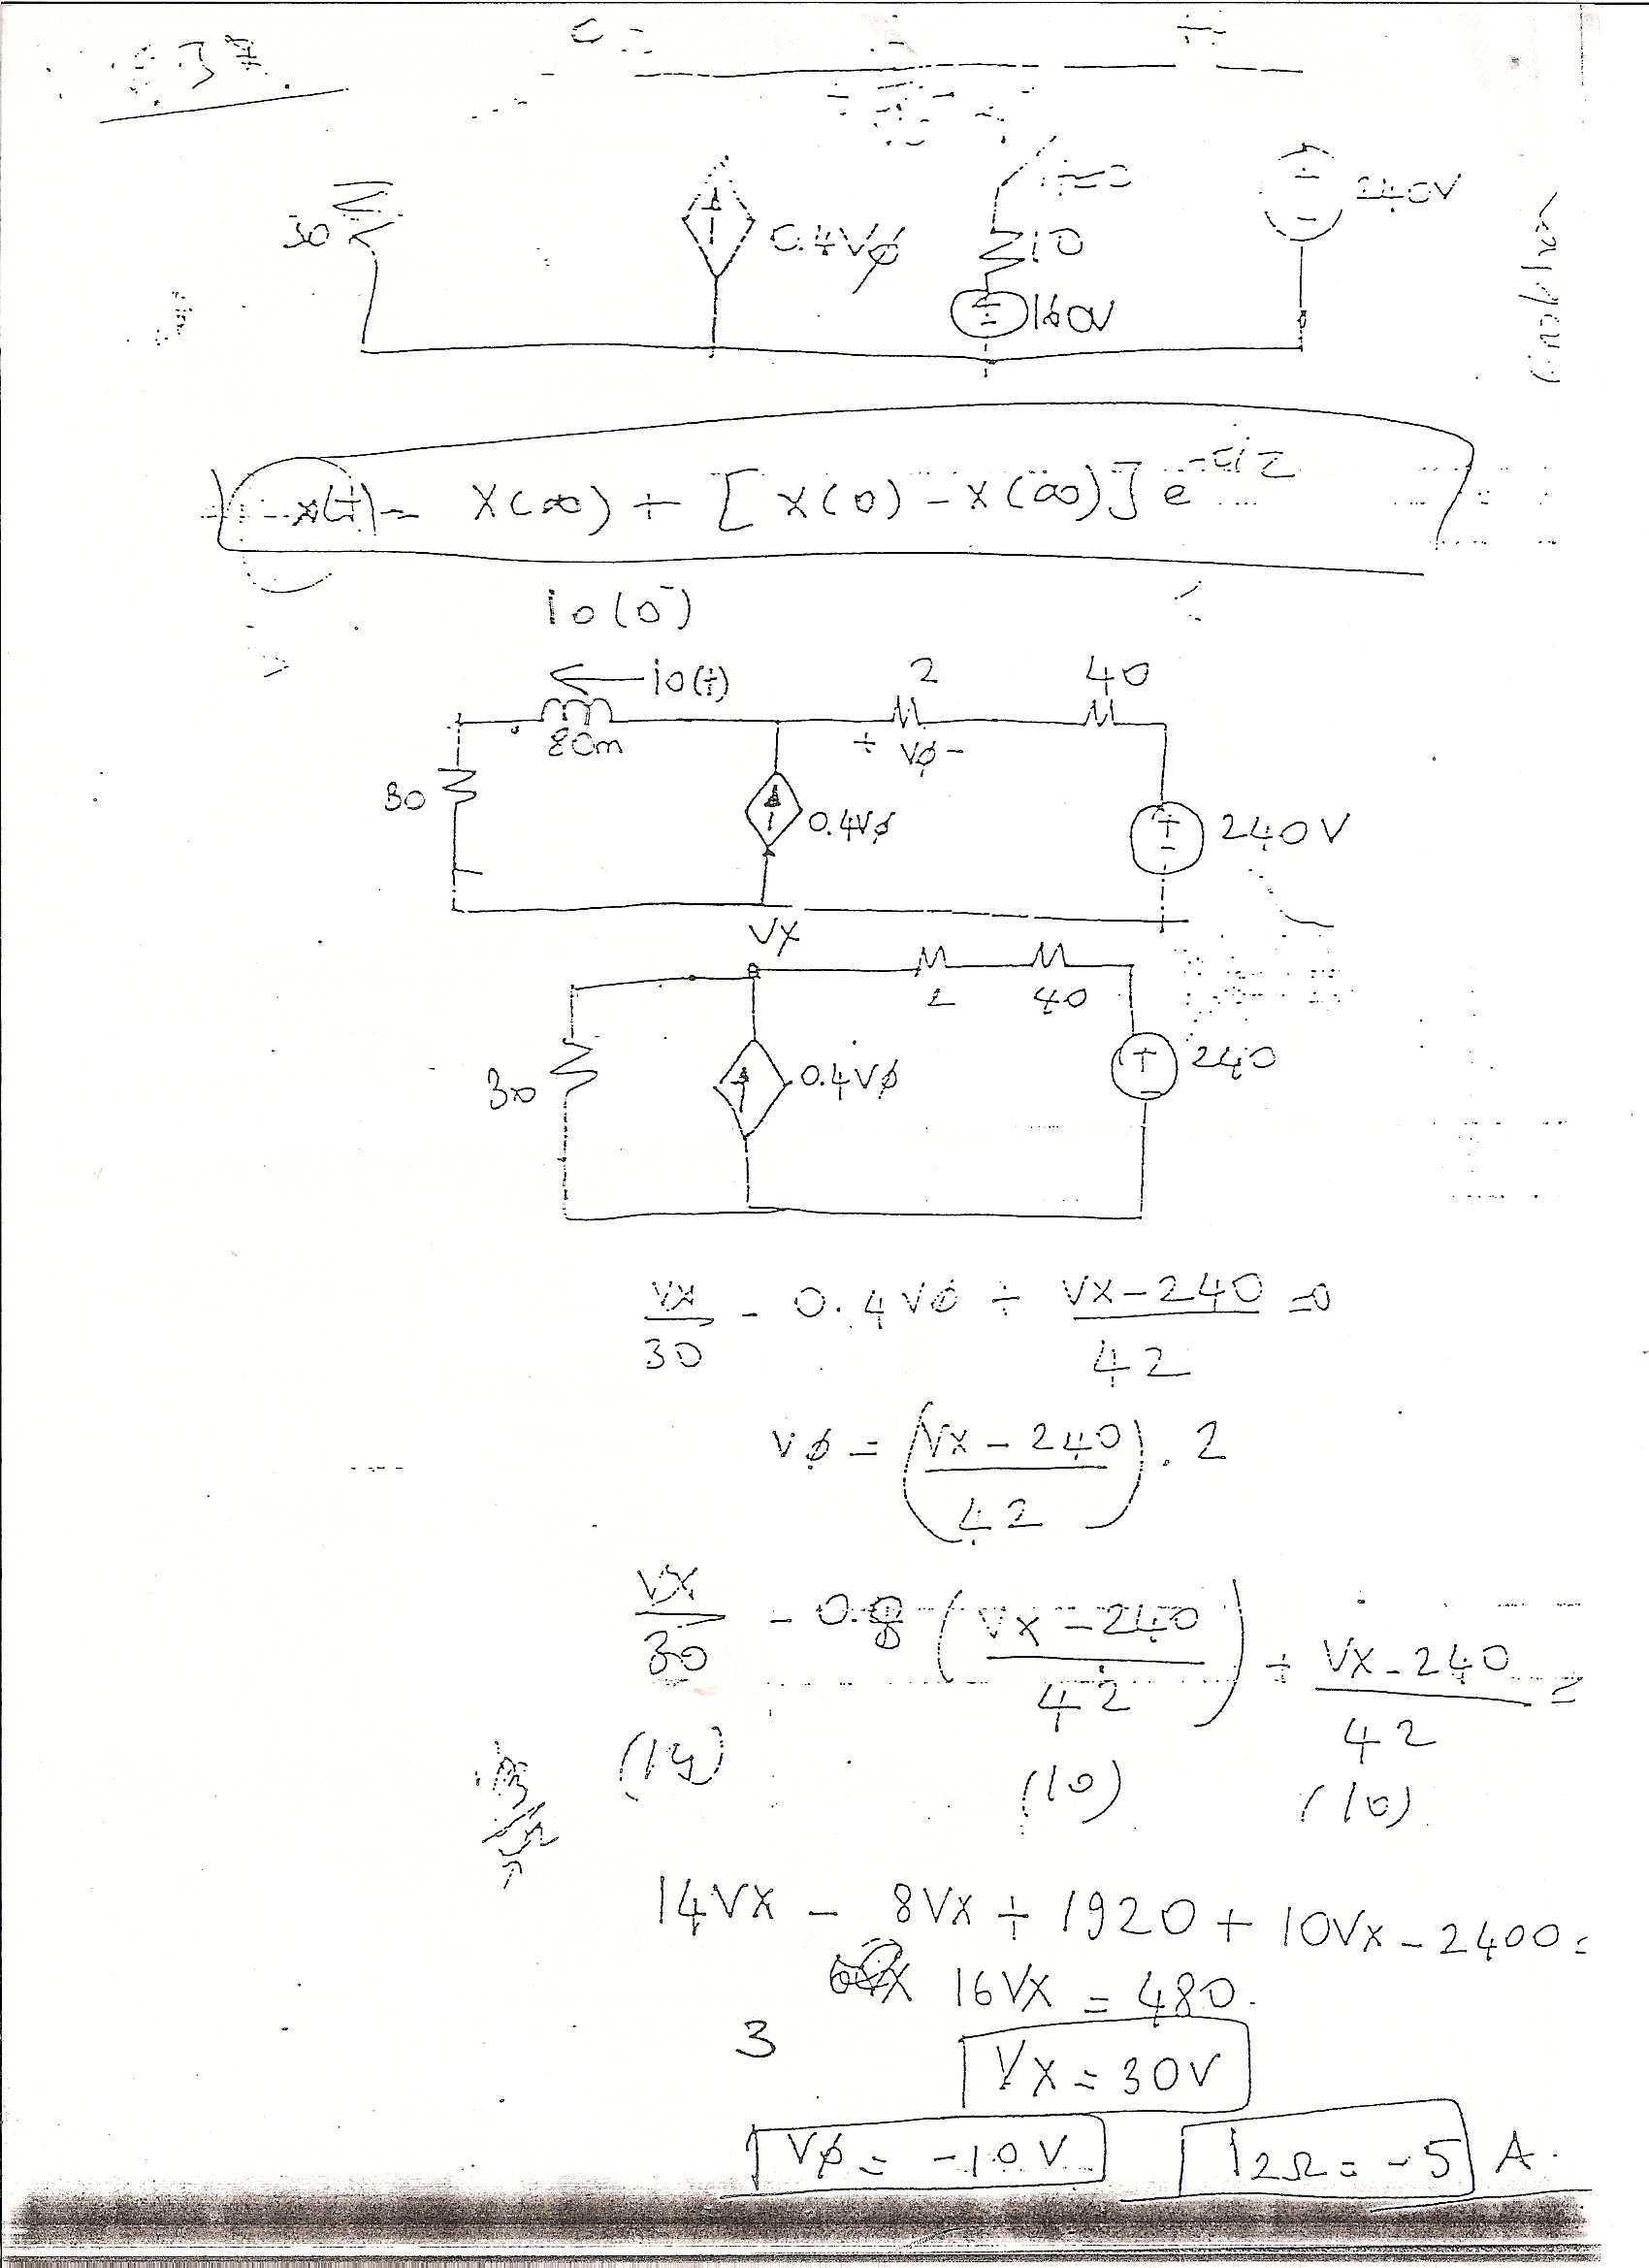 37.
30
0.4Vø
10
160V
240V
x(t) = x(∞) + [x(0) - x(∞)] e^-t/τ
io(0⁻)
← io(t)
2
40
80m
+ Vø -
30
0.4Vø
240V
Vx
2
40
30
0.4Vø
240
Vx/30 - 0.4Vø + Vx-240/42 = 0
Vø = (Vx - 240/42) . 2
Vx/30 - 0.8 (Vx - 240/42) + Vx-240/42 =
(14) (10) (10)
14Vx - 8Vx + 1920 + 10Vx - 2400 =
16Vx = 480.
3
Vx = 30V
Vø = -10V
I2Ω = -5 A.